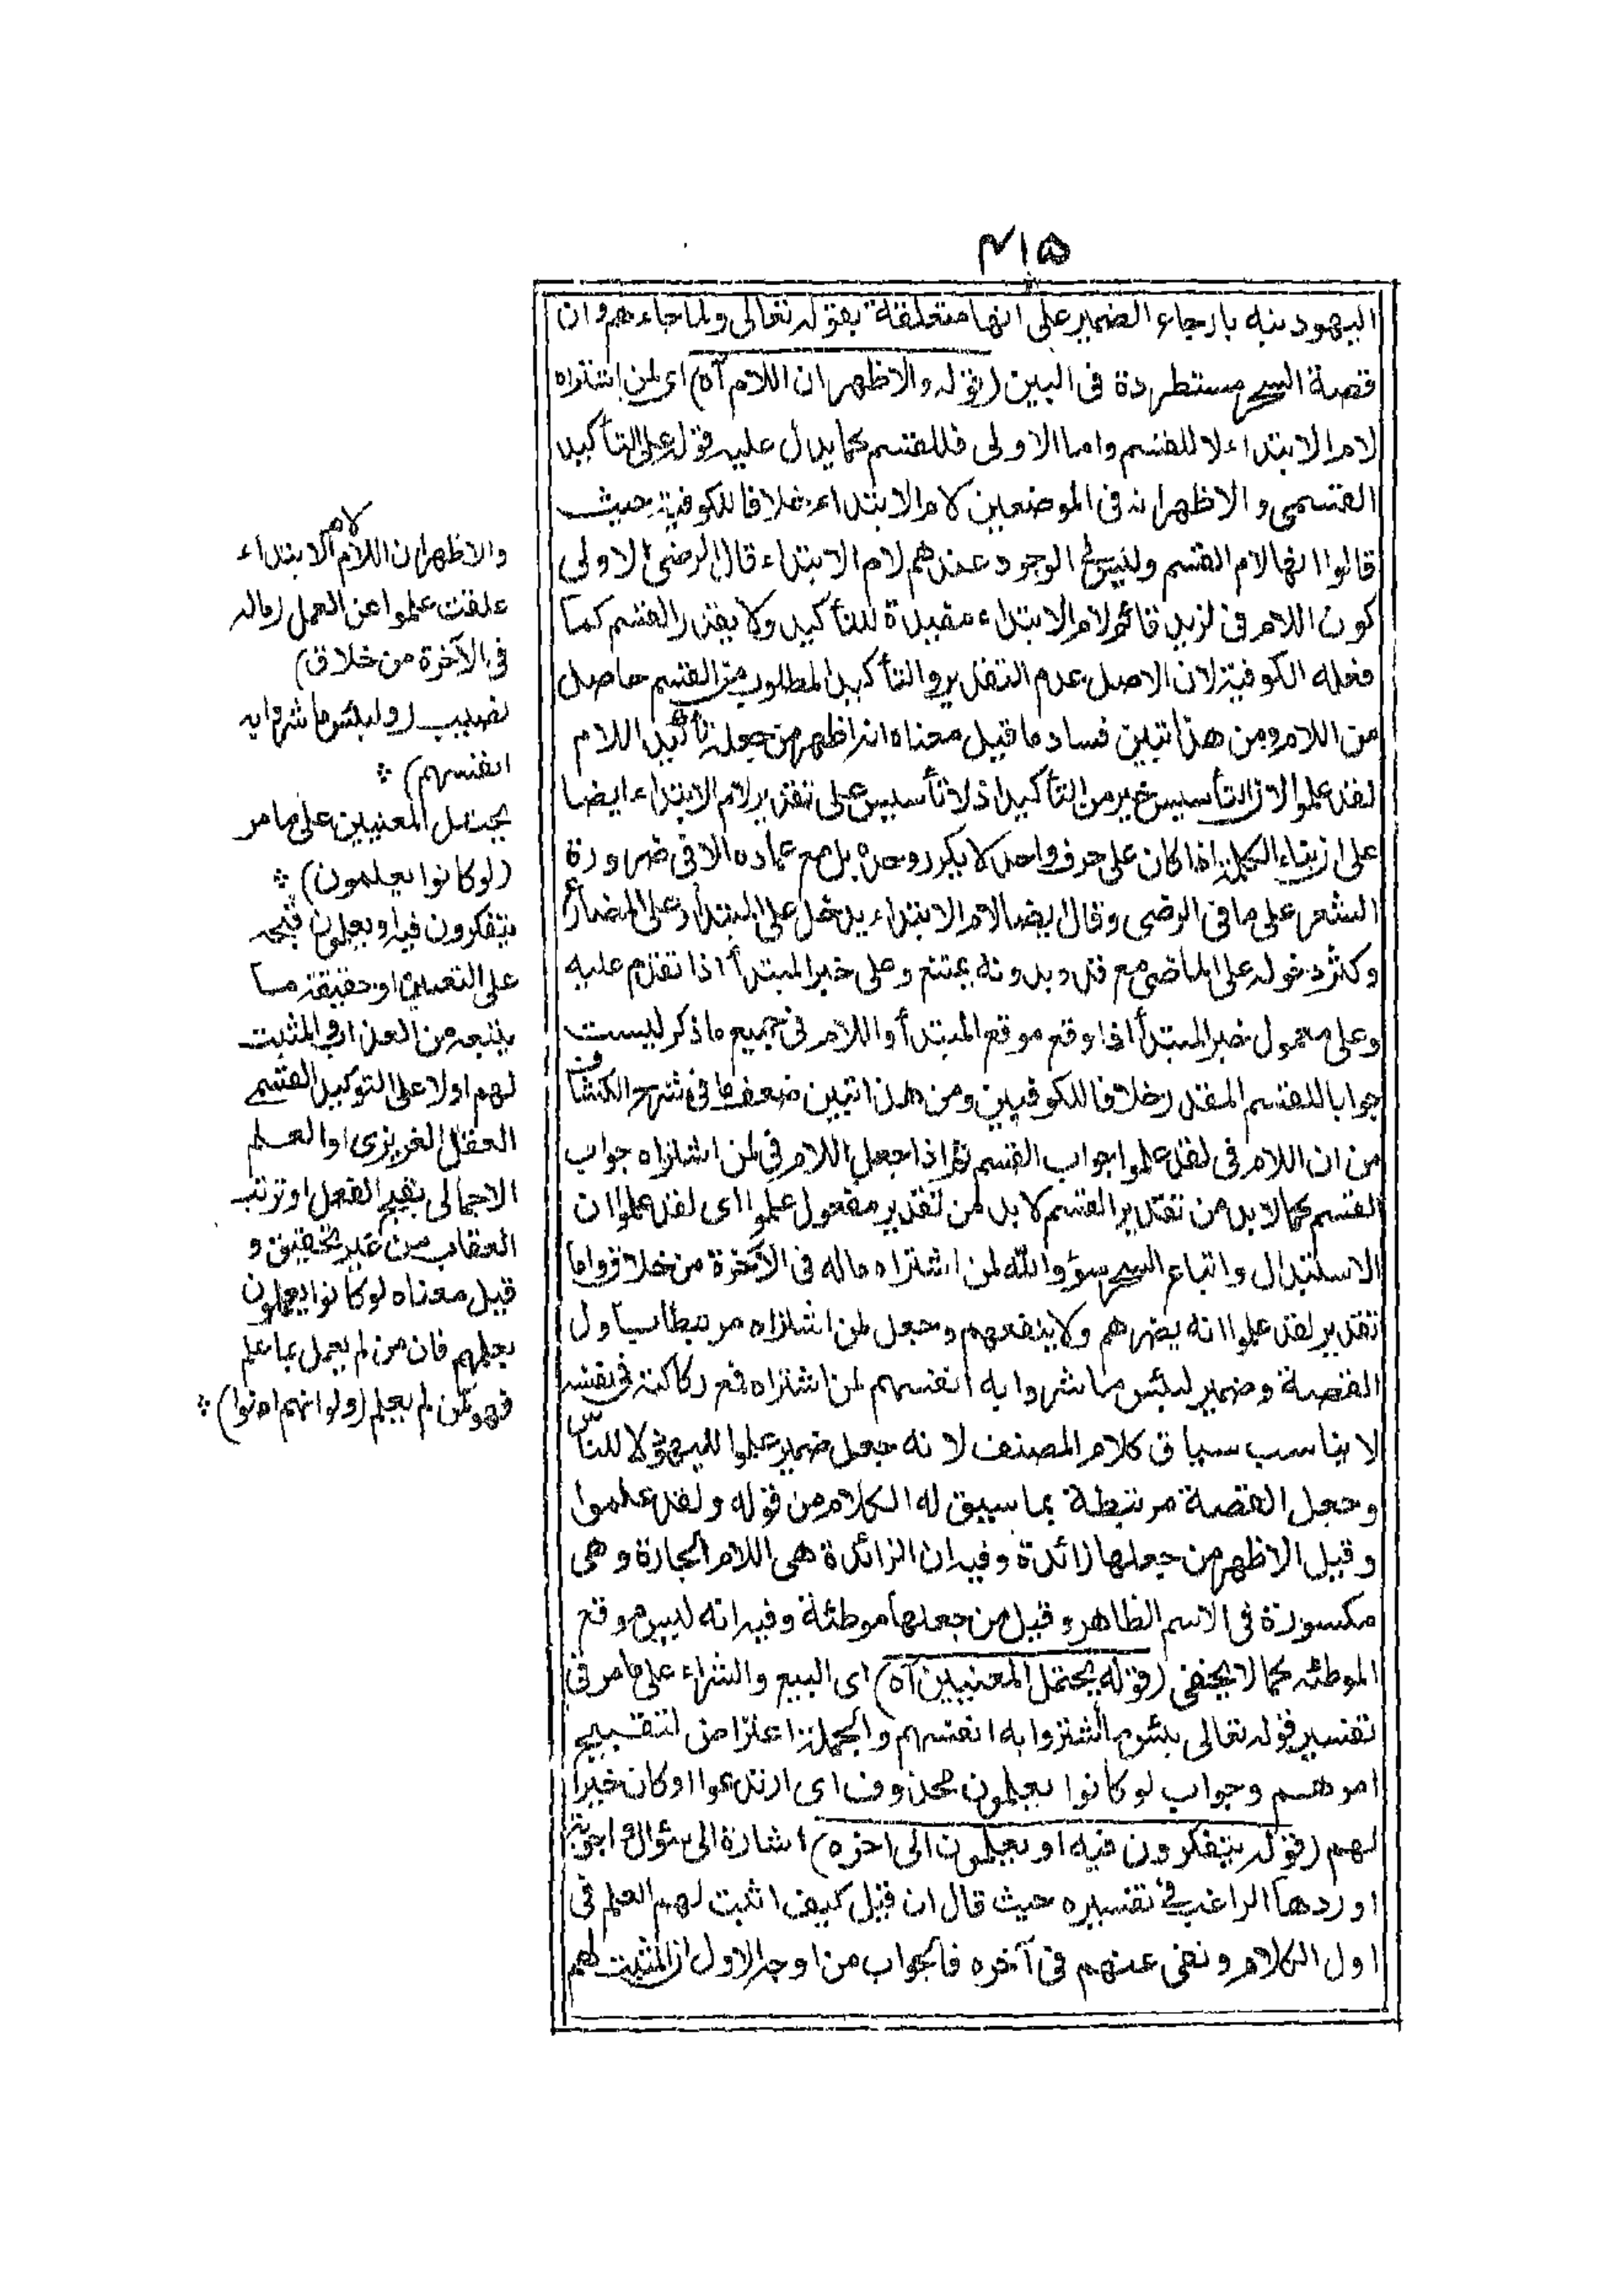 ٤١٥
اليهود ينبه بارجاع الضمير على انها متعلقة بقوله تعالى ولما جاءهم وان
قصة السحر مستطردة فى البين (قوله والاظهر ان اللام آه) اى لمن اشتراه
لام الابتداء لا للقسم واما الاولى فللقسم كما يدل عليه قوله على التأكيد
القسمى والاظهر انه فى الموضعين لام الابتداء خلافا للكوفية حيث
قالوا انها لام القسم وليس فى الوجود عندهم لام الابتداء قال الرضى الاولى
كون اللام فى لزيد قائم لام الابتداء مفيدة للتأكيد ولا يقدر القسم كما
فعله الكوفية لان الاصل عدم التقدير والتأكيد المطلوب من القسم حاصل
من اللام ومن هذا تبين فساد ما قيل معناه انه اظهر من جعله تأكيد اللام
لقد علموا لان التأسيس خير من التأكيد اذ لا تأسيس على تقدير لام الابتداء ايضا
على ان بناء الكلمة اذا كان على حرف واحد لا يكرر وحده بل مع عماده الا فى ضرورة
الشعر على ما فى الرضى وقال ايضا لام الابتداء يدخل على المبتدأ وعلى المضارع
وكثر دخوله على الماضى مع قد وبدونه يمتنع وعلى خبر المبتدأ اذا تقدم عليه
وعلى معمول خبر المبتدأ اذا وقع موقع المبتدأ واللام فى جميع ما ذكر ليست
جوابا للقسم المقدر خلافا للكوفيين ومن هذا تبين ضعف ما فى شرح الكشاف
من ان اللام فى لقد علموا جواب القسم ثم اذا جعل اللام فى لمن اشتراه جواب
القسم كما لا بد من تقدير القسم لا بد لمن تقدير مفعول علموا اى لقد علموا ان
الاستبدال واتباع السحر سوء والله لمن اشتراه ماله فى الآخرة من خلاق واما
تقدير لقد علموا انه يضرهم ولا ينفعهم وجعل لمن اشتراه مرتبطا باول
القصة وضمير لبئس ما شروا به انفسهم لمن اشتراه فمع ركاكته فى نفسه
لا يناسب سياق كلام المصنف لانه جعل ضمير علموا لليهود لا للناس
وجعل القصة مرتبطة بما سيق له الكلام من قوله ولقد علموا
وقيل الاظهر من جعلها زائدة وفيه ان الزائدة هى اللام الجارة وهى
مكسورة فى الاسم الظاهر وقيل من جعلها موطئة وفيه انه ليس موقع
الموطئه كما لا يخفى (قوله يحتمل المعنيين آه) اى البيع والشراء على ما مر فى
تفسير قوله تعالى بئس ما اشتروا به انفسهم والجملة اعتراض لتقبيح
امرهم وجواب لو كانوا يعلمون محذوف اى ارتدعوا او كان خيرا
لهم (قوله يتفكرون فيه او يعلمون الى اخره) اشارة الى سؤال واجوبة
اوردها الراغب فى تفسيره حيث قال ان قيل كيف اثبت لهم العلم فى
اول الكلام ونفى عنهم فى آخره فالجواب من اوجه الاول ان المثبت لهم
والاظهر ان اللام لام الابتداء
علقت علموا عن العمل (ماله
فى الآخرة من خلاق)
نصيب (ولبئس ما شروا به
انفسهم) ∴
يحتمل المعنيين على ما مر
(لو كانوا يعلمون) ∴
يتفكرون فيه او يعلمون قبحه
على التعيين او حقيقة ما
يتبعه من العذاب والمثبت
لهم اولا على التوكيد القسمى
العقل الغريزى او العلم
الاجمالى بقبح الفعل او ترتب
العقاب من غير تحقيق و
قيل معناه لو كانوا يعملون
بعلمهم فان من لم يعمل بما علم
فهو كمن لم يعلم (ولو انهم امنوا) ∴